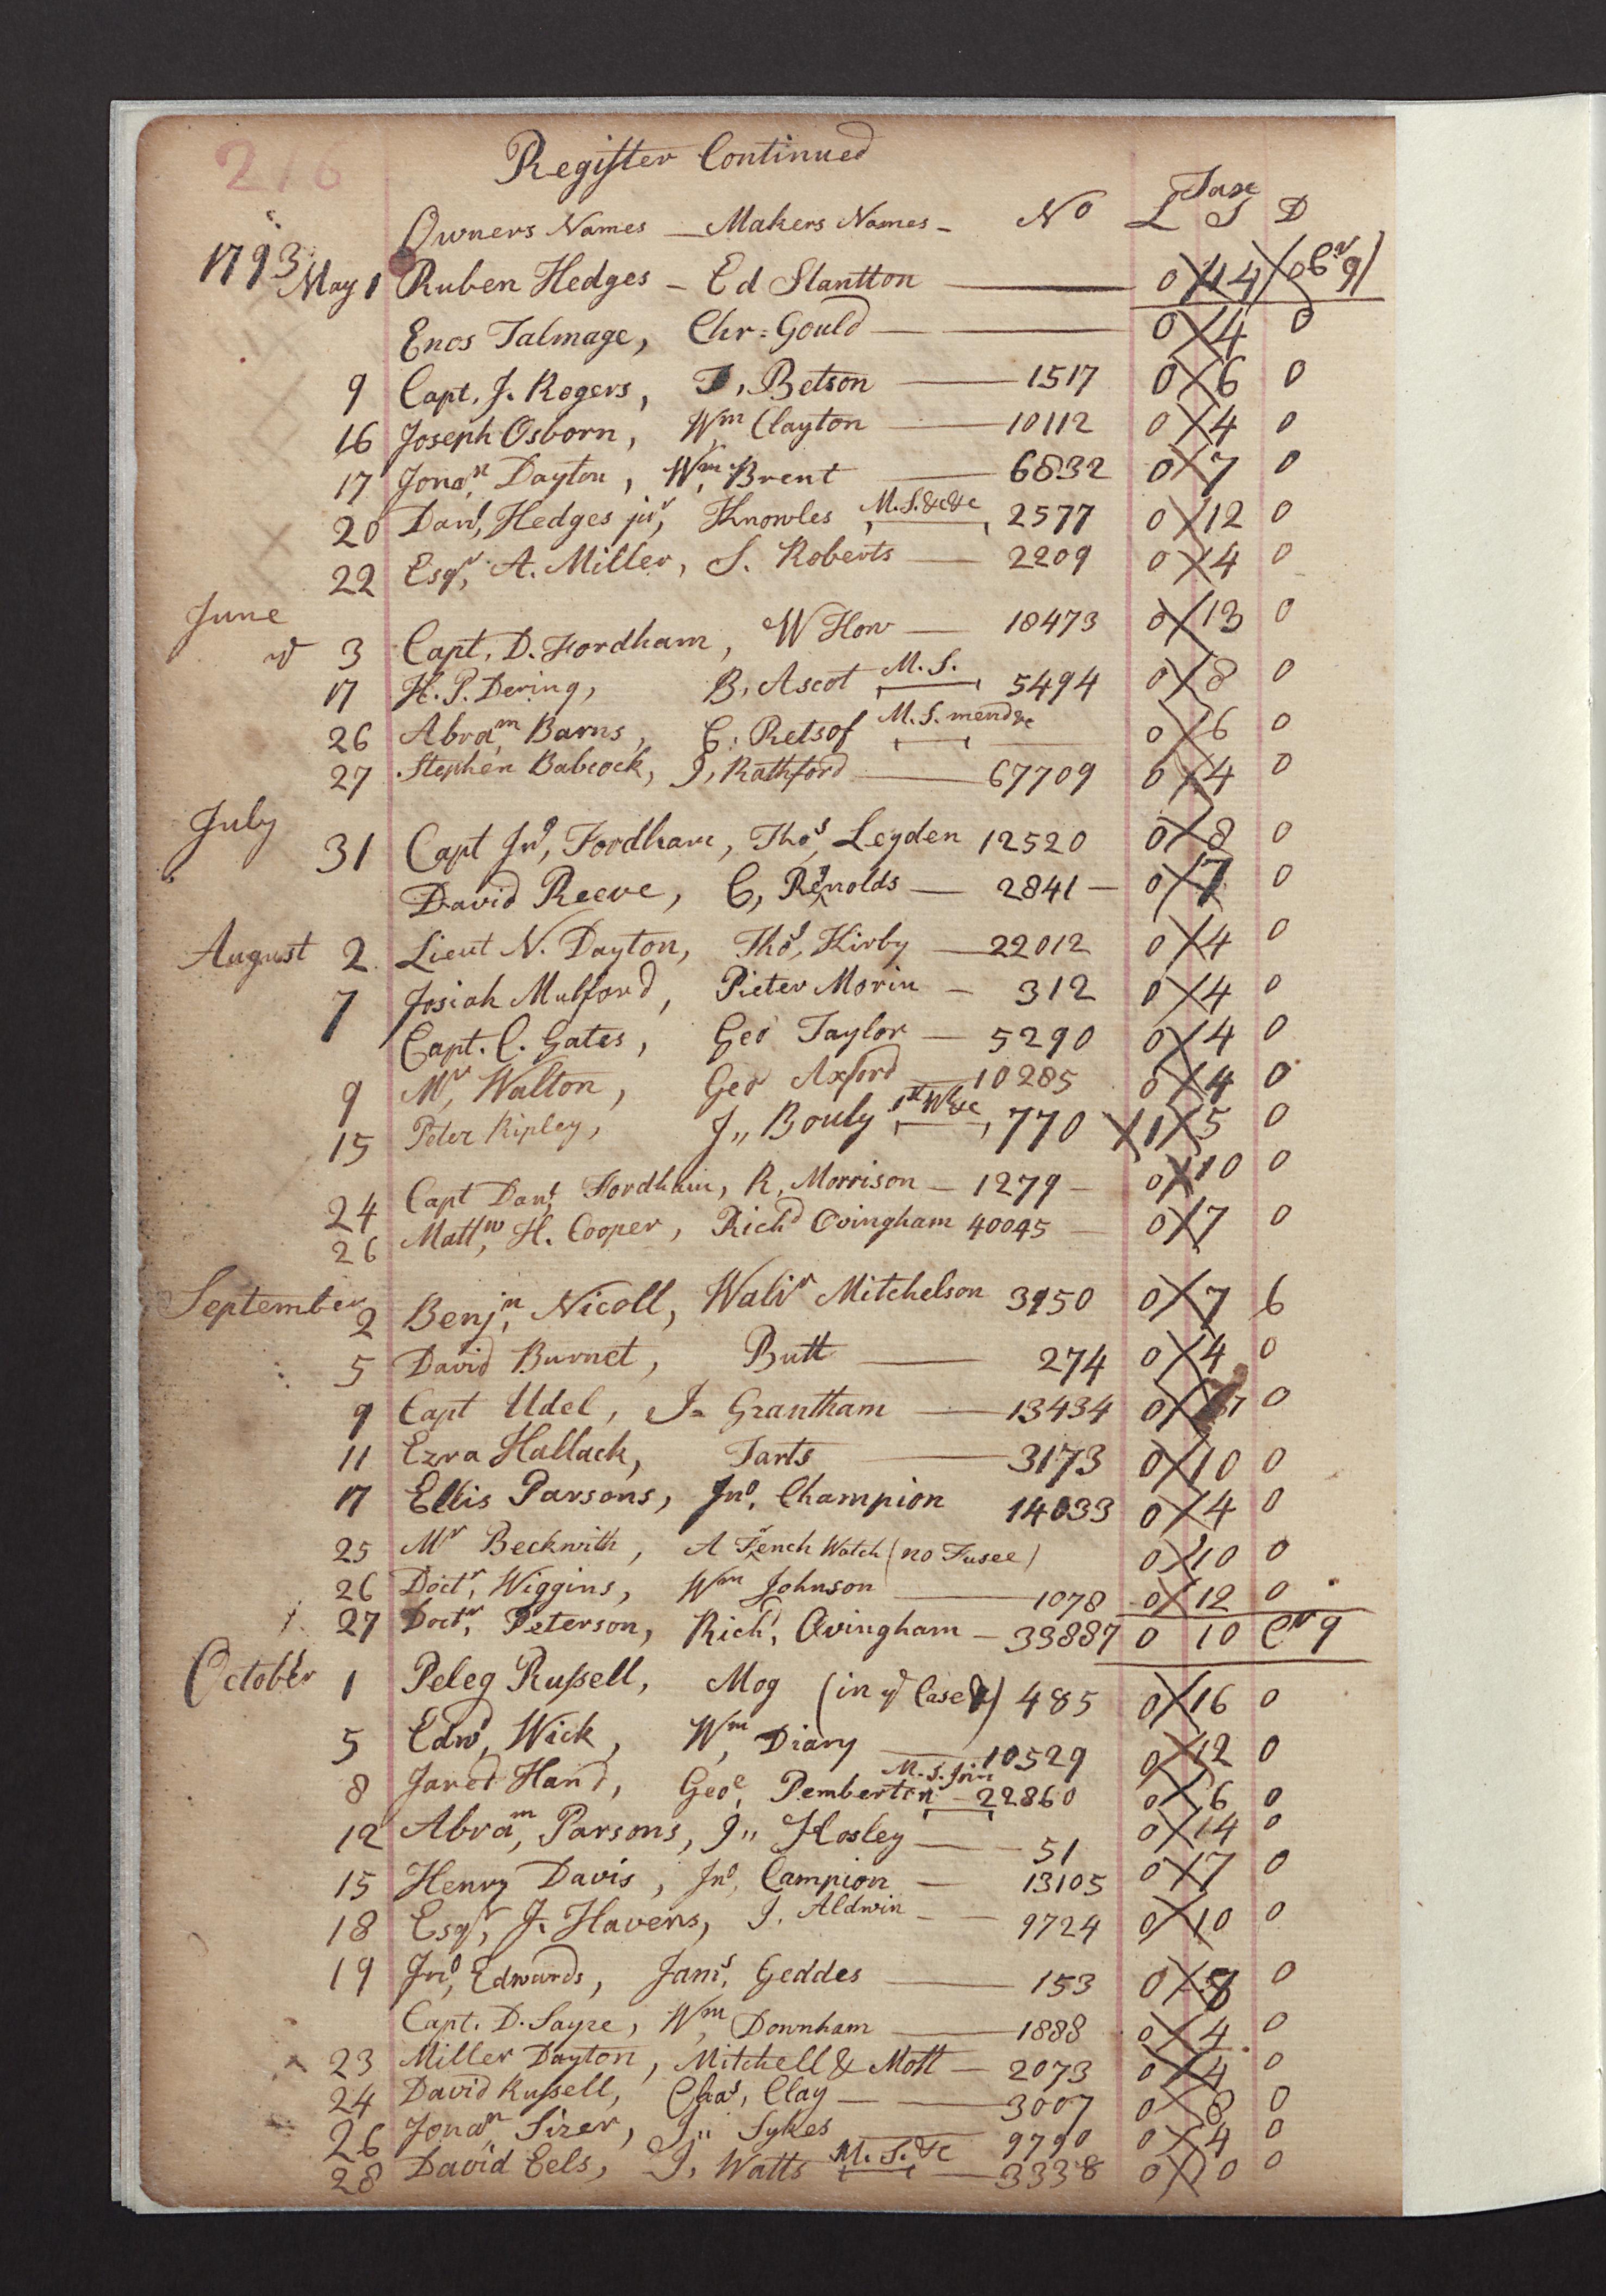 216
Register Continued
Tax
Owners Names — Makers Names - No L S D
1793 May 1 Ruben Hedges - Ed Stantton 0 14 0 Cr 9
Enos Talmage, Chr=Gould 0 4 0
9 Capt. J. Rogers, Betson 1517 0 6 0
16 Joseph Osborn, Wm Clayton 10112 0 4 0
17 Jonan, Dayton, Wm, Brent 6832 0 7 0
20 Danl, Hedges jur, Knowles M.S.&c&c 2577 0 12 0
22 Esqr, A. Miller, S. Roberts 2209 0 4 0
June 3 Capt. D. Fordham, W How 18473 0 13 0
17 H. P. Dering, B, Ascot M.S. 5494 0 8 0
26 Abram, Barns, C, Retsof M.S. mend&c 0 6 0
27 Stephen Babcock, J, Rathford 67709 0 4 0
July 31 Capt Jno, Fordham, Thos, Leyden 12520 0 8 0
David Reeve, C, Reynolds — 2841 — 0 7 0
August 2 Lieut N. Dayton, Thos, Kirby — 22012 0 4 0
7 Josiah Mulford, Pieter Morin - 312 0 4 0
Capt. C. Gates, Geo Taylor — 5290 0 4 0
9 Mr, Walton, Geo Axford — 10285 0 4 0
15 Peter Ripley, J,, Bouly &c 770 1 5 0
24 Capt Danl, Fordham, R, Morrison — 1279 — 0 10 0
26 Matthw, H. Cooper, Richd Ovingham 40045 — 0 7 0
September 2 Benjn, Nicoll, Walr Mitchelson 3950 0 7 6
5 David Burnet, Butt 274 0 4 0
9 Capt Udel, J= Grantham 13434 0 7 0
11 Ezra Hallack, Tarts 3173 0 10 0
17 Ellis Parsons, Jno, Champion 14033 0 4 0
25 Mr Beckwith, A French Watch (no Fusee) 0 10 0
26 Doctr, Wiggins, Wm Johnson 1078 0 12 0
27 Doctr, Peterson, Richd, Ovingham — 33887 0 10 Cr 9
October 1 Peleg Russell, Mog (in ye Case &) 485 0 16 0
5 Edwd, Wick, Wm, Diary 10529 0 12 0
8 Jared Hand, Geoe, Pemberton M.S. 22860 0 6 0
12 Abram, Parsons, J,, Hosley 51 0 14 0
15 Henry Davis, Jno, Campion 13105 0 7 0
18 Esqr, J. Havens, J. Aldwin 9724 0 10 0
19 Jno, Edwards, Jams, Geddes 153 0 8 0
Capt. D. Sayre, Wm, Downham 1888 0 4 0
23 Miller Dayton, Mitchell & Mott — 2073 0 4 0
24 David Russell, Chas, Clay 3007 0 8 0
26 Jonan Sizer, J,, Sykes 9790 0 4 0
28 David Eels, J, Watts M.S.&c 3338 0 0